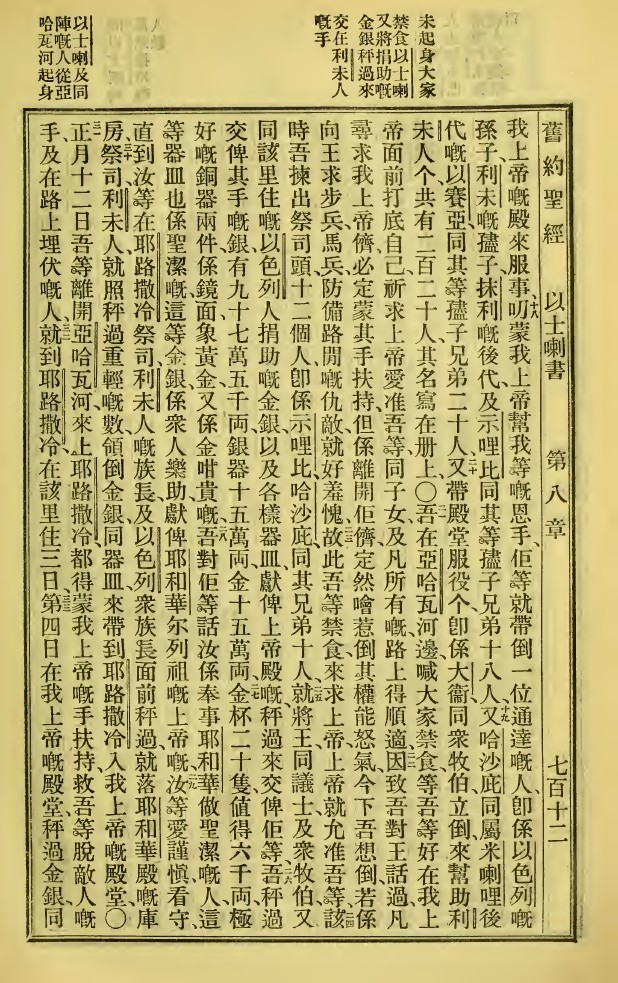 未起身大家
禁食以士喇
又將捐助嘅
金銀秤過來
交在利未人
嘅手
以士喇及同
陣嘅人從亞
哈瓦河起身
舊約聖經 以士喇書 第八章 七百十二
我上帝嘅殿來服事、十八叨蒙我上帝幫我等嘅恩手、佢等就帶倒一位通達嘅人、卽係以色列嘅
孫子、利未嘅孻子、抹利嘅後代、及示哩比、同其等孻子兄弟十八人、十九又哈沙庇、同屬米喇哩後
代嘅以賽亞、同其等孻子兄弟二十人、二十又帶殿堂服役个、卽係大衞同衆牧伯立倒來幫助利
未人个、共有二百二十人、其名寫在册上〇二一吾在亞哈瓦河邊、喊大家禁食、等吾等好在我上
帝面前打底自己、祈求上帝愛准吾等、同子女及凡所有嘅、路上得順適、二二因致吾對王話過、凡
尋求我上帝儕、必定蒙其手扶持、但係離開佢儕、定然噲惹倒其權能怒氣、今下吾想倒若係
向王求步兵馬兵、防備路閒嘅仇敵、就好羞愧、二三故此吾等禁食來求上帝、上帝就允准吾等、二四該
時吾揀出祭司頭十二個人、卽係示哩比、哈沙庇、同其兄弟十人、二五就將王同議士及衆牧伯、又
同該里住嘅以色列人捐助嘅金銀、以及各樣器皿、獻俾上帝殿嘅、秤過來交俾佢等、二六吾秤過
交俾其手嘅、銀有九十七萬五千両、銀器十五萬両、金十五萬両、二七金杯二十隻、值得六千両、極
好嘅銅器兩件、係鏡面象黃金、又係金咁貴嘅、二八吾對佢等話、汝係奉事耶和華做聖潔嘅人、這
等器皿也係聖潔嘅、這等金銀、係衆人樂助獻俾耶和華尔列祖嘅上帝嘅、二九汝等愛謹愼看守、
直到汝等在耶路撒冷祭司利未人嘅族長、及以色列衆族長面前秤過、就落耶和華殿嘅庫
房、三十祭司利未人就照秤過重輕嘅數、領倒金銀同器皿、來帶到耶路撒冷、入我上帝嘅殿堂〇
三一正月十二日、吾等離開亞哈瓦河、來上耶路撒冷、都得蒙我上帝嘅手扶持、救吾等脫敵人嘅
手、及在路上埋伏嘅人、三二就到耶路撒冷、在該里住三日、三三第四日在我上帝嘅殿堂、秤過金銀同